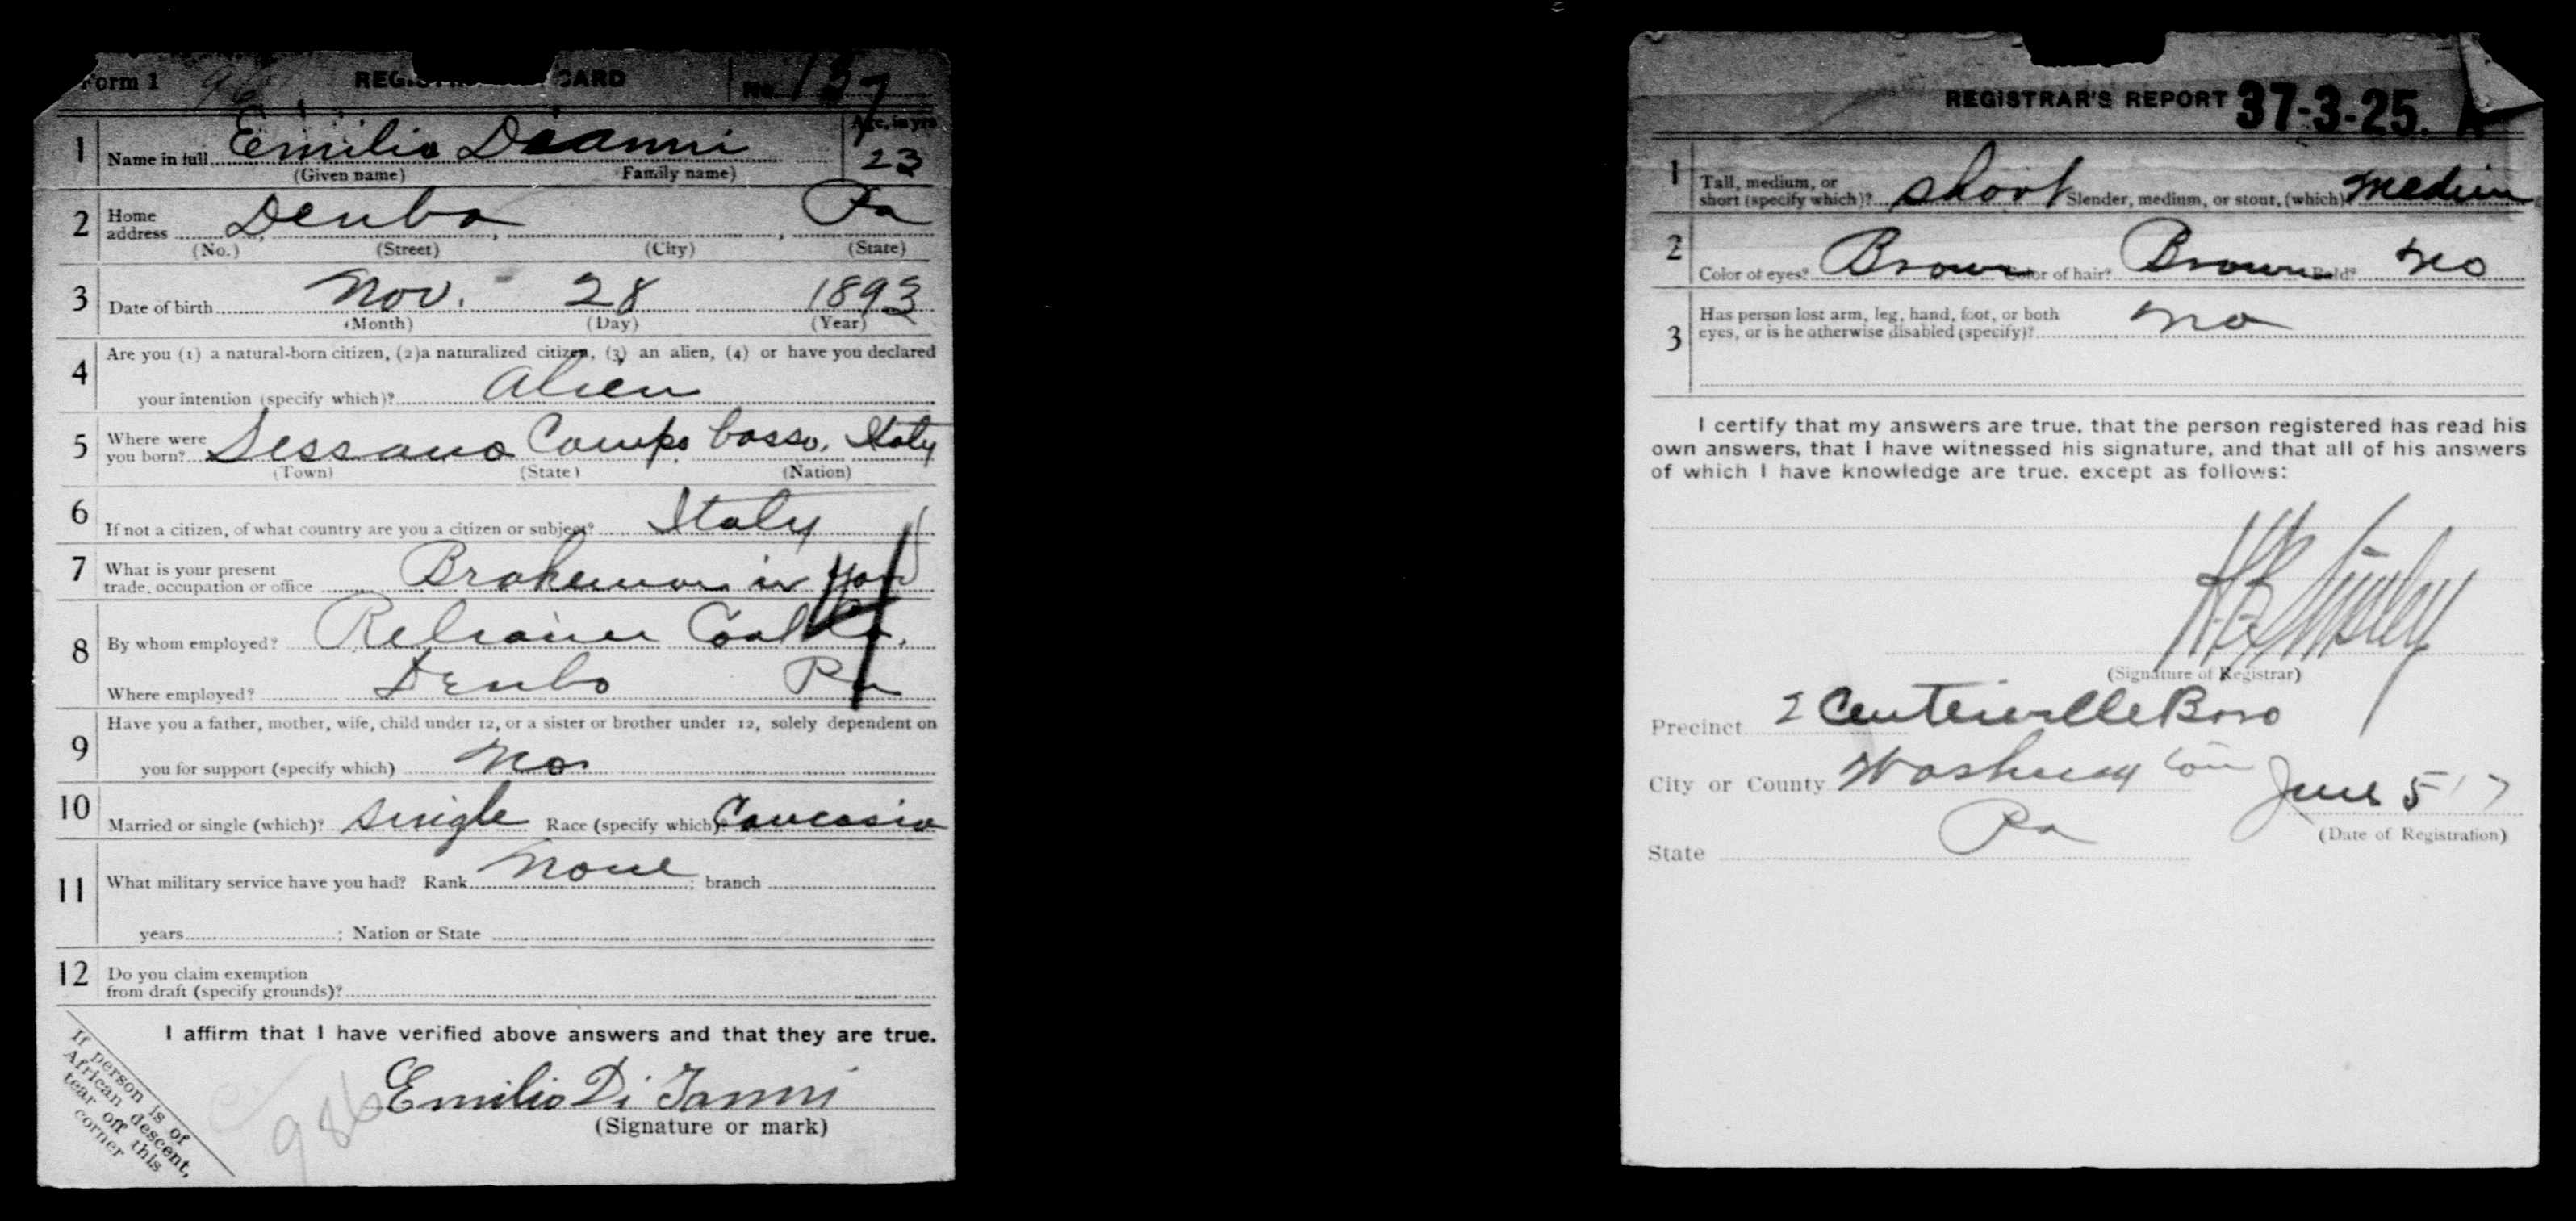 Form 1 REGISTRATION CARD No. 137
1 Name in full Emilio Dianni Age, in yrs 23
(Given name) (Family name)
2 Home address Denbo Pa
(No.) (Street) (City) (State)
3 Date of birth Nov. 28 1893
(Month) (Day) (Year)
4 Are you (1) a natural-born citizen, (2) a naturalized citizen, (3) an alien, (4) or have you declared
your intention (specify which)? Alien
5 Where were you born? Sessano Campobasso, Italy
(Town) (State) (Nation)
6 If not a citizen, of what country are you a citizen or subject? Italy
7 What is your present trade, occupation or office Brakeman in
8 By whom employed? Reliance Coal Co.
Where employed? Denbo Pa
9 Have you a father, mother, wife, child under 12, or a sister or brother under 12, solely dependent on
you for support (specify which) No
10 Married or single (which)? single Race (specify which)? Caucasia
11 What military service have you had? Rank None ; branch
years ; Nation or State
12 Do you claim exemption
from draft (specify grounds)?
I affirm that I have verified above answers and that they are true.
Emilio Di Ianni
(Signature or mark)
If person is of
African descent,
tear off this
corner
986
REGISTRAR'S REPORT 37-3-25. A
1 Tall, medium, or
short (specify which)? short Slender, medium, or stout, (which) Medium
2 Color of eyes? Brown Color of hair? Brown Bald? No
3 Has person lost arm, leg, hand, foot, or both
eyes, or is he otherwise disabled (specify)? No
I certify that my answers are true, that the person registered has read his
own answers, that I have witnessed his signature, and that all of his answers
of which I have knowledge are true, except as follows:
(Signature of Registrar)
Precinct 2 Centerville Boro
City or County Washington Co June 5 17
(Date of Registration)
State Pa